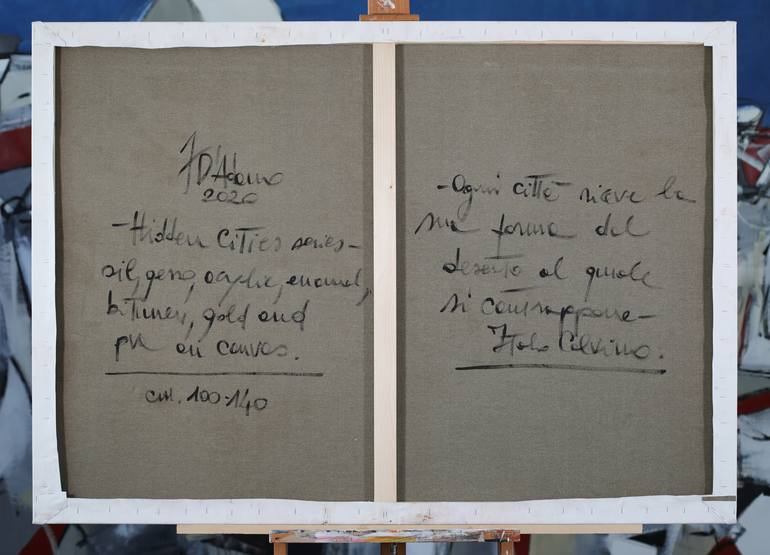 D'Adamo
2020
-Hidden Cities series-
oil, gesso, acrylic, enamel,
bitumen, gold and
pva on canvas.
cm. 100·140
-Ogni città riceve la
sua forma dal
deserto al quale
si contrappone-
Italo Calvino.